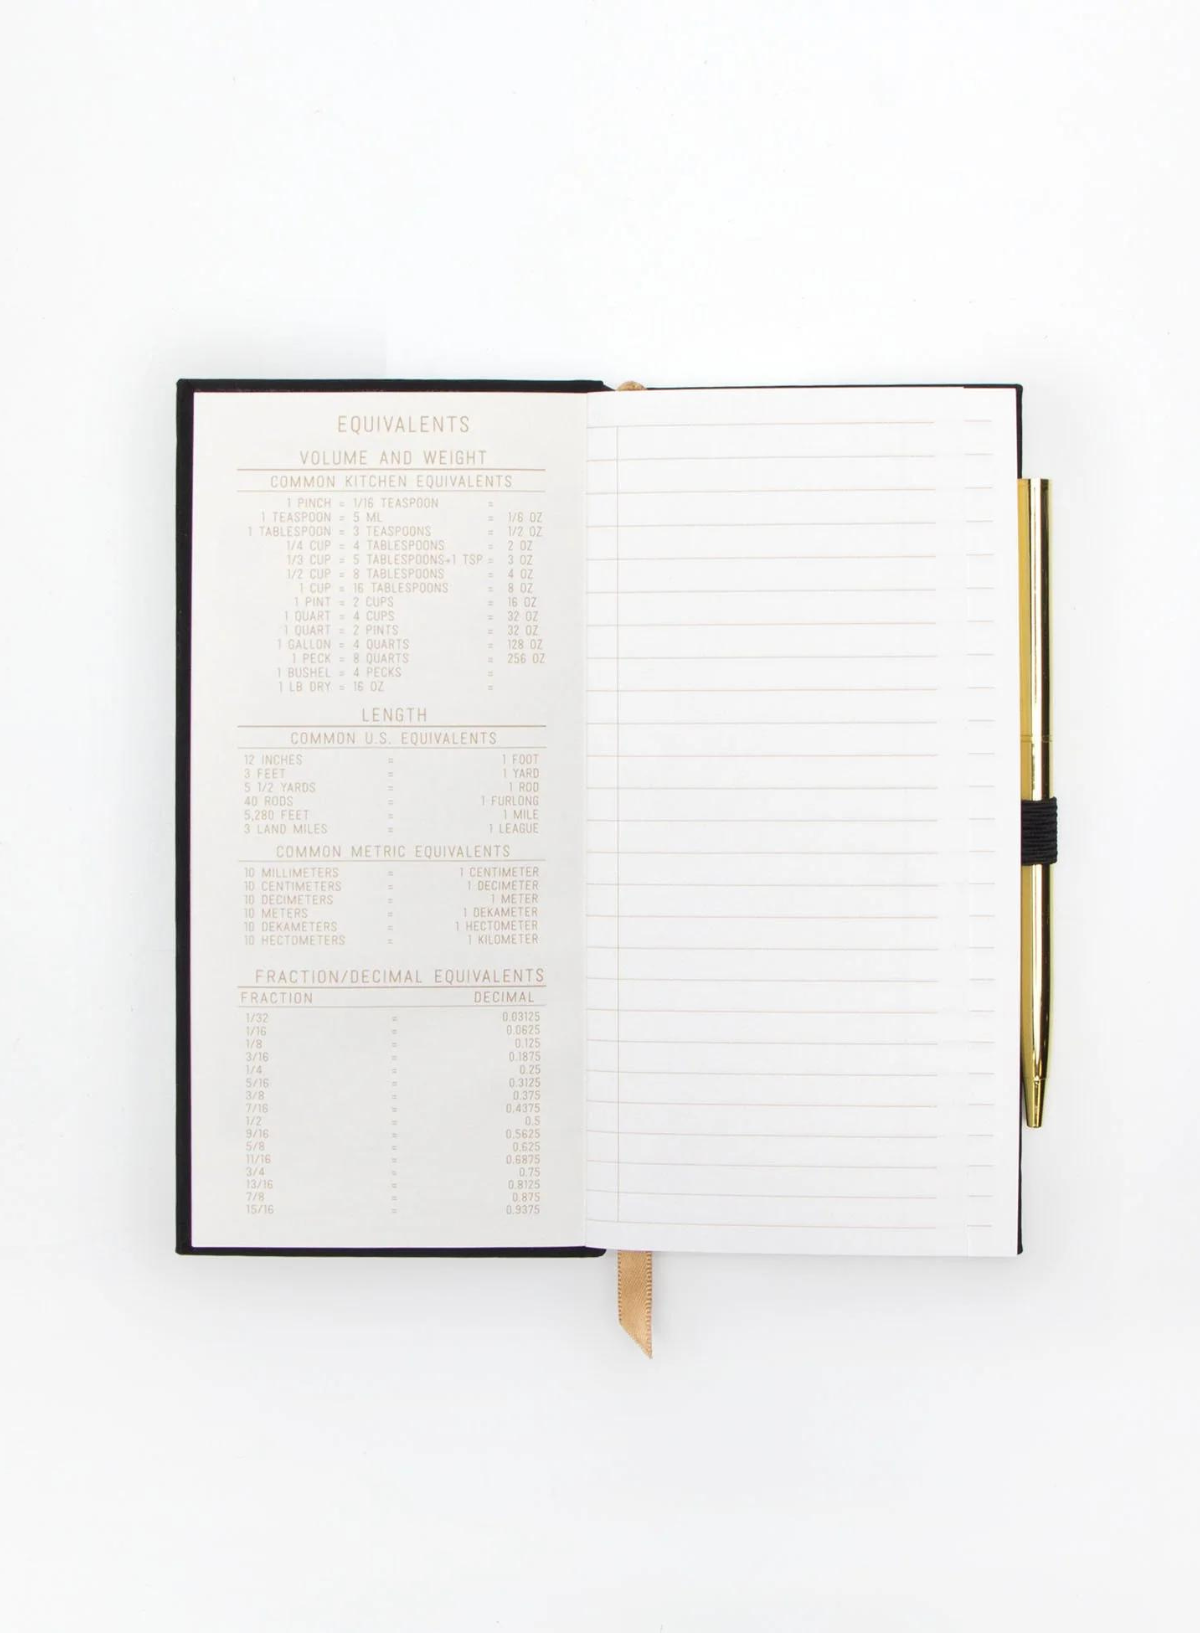 EQUIVALENTS
VOLUME AND WEIGHT
COMMON KITCHEN EQUIVALENTS
1 PINCH = 1/16 TEASPOON =
1 TEASPOON = 5 ML = 1/6 OZ
1 TABLESPOON = 3 TEASPOONS = 1/2 OZ
1/4 CUP = 4 TABLESPOONS = 2 OZ
1/3 CUP = 5 TABLESPOONS+1 TSP = 3 OZ
1/2 CUP = 8 TABLESPOONS = 4 OZ
1 CUP = 16 TABLESPOONS = 8 OZ
1 PINT = 2 CUPS = 16 OZ
1 QUART = 4 CUPS = 32 OZ
1 QUART = 2 PINTS = 32 OZ
1 GALLON = 4 QUARTS = 128 OZ
1 PECK = 8 QUARTS = 256 OZ
1 BUSHEL = 4 PECKS =
1 LB DRY = 16 OZ =
LENGTH
COMMON U.S. EQUIVALENTS
12 INCHES = 1 FOOT
3 FEET = 1 YARD
5 1/2 YARDS = 1 ROD
40 RODS = 1 FURLONG
5,280 FEET = 1 MILE
3 LAND MILES = 1 LEAGUE
COMMON METRIC EQUIVALENTS
10 MILLIMETERS = 1 CENTIMETER
10 CENTIMETERS = 1 DECIMETER
10 DECIMETERS = 1 METER
10 METERS = 1 DEKAMETER
10 DEKAMETERS = 1 HECTOMETER
10 HECTOMETERS = 1 KILOMETER
FRACTION/DECIMAL EQUIVALENTS
FRACTION DECIMAL
1/32 = 0.03125
1/16 = 0.0625
1/8 = 0.125
3/16 = 0.1875
1/4 = 0.25
5/16 = 0.3125
3/8 = 0.375
7/16 = 0.4375
1/2 = 0.5
9/16 = 0.5625
5/8 = 0.625
11/16 = 0.6875
3/4 = 0.75
13/16 = 0.8125
7/8 = 0.875
15/16 = 0.9375